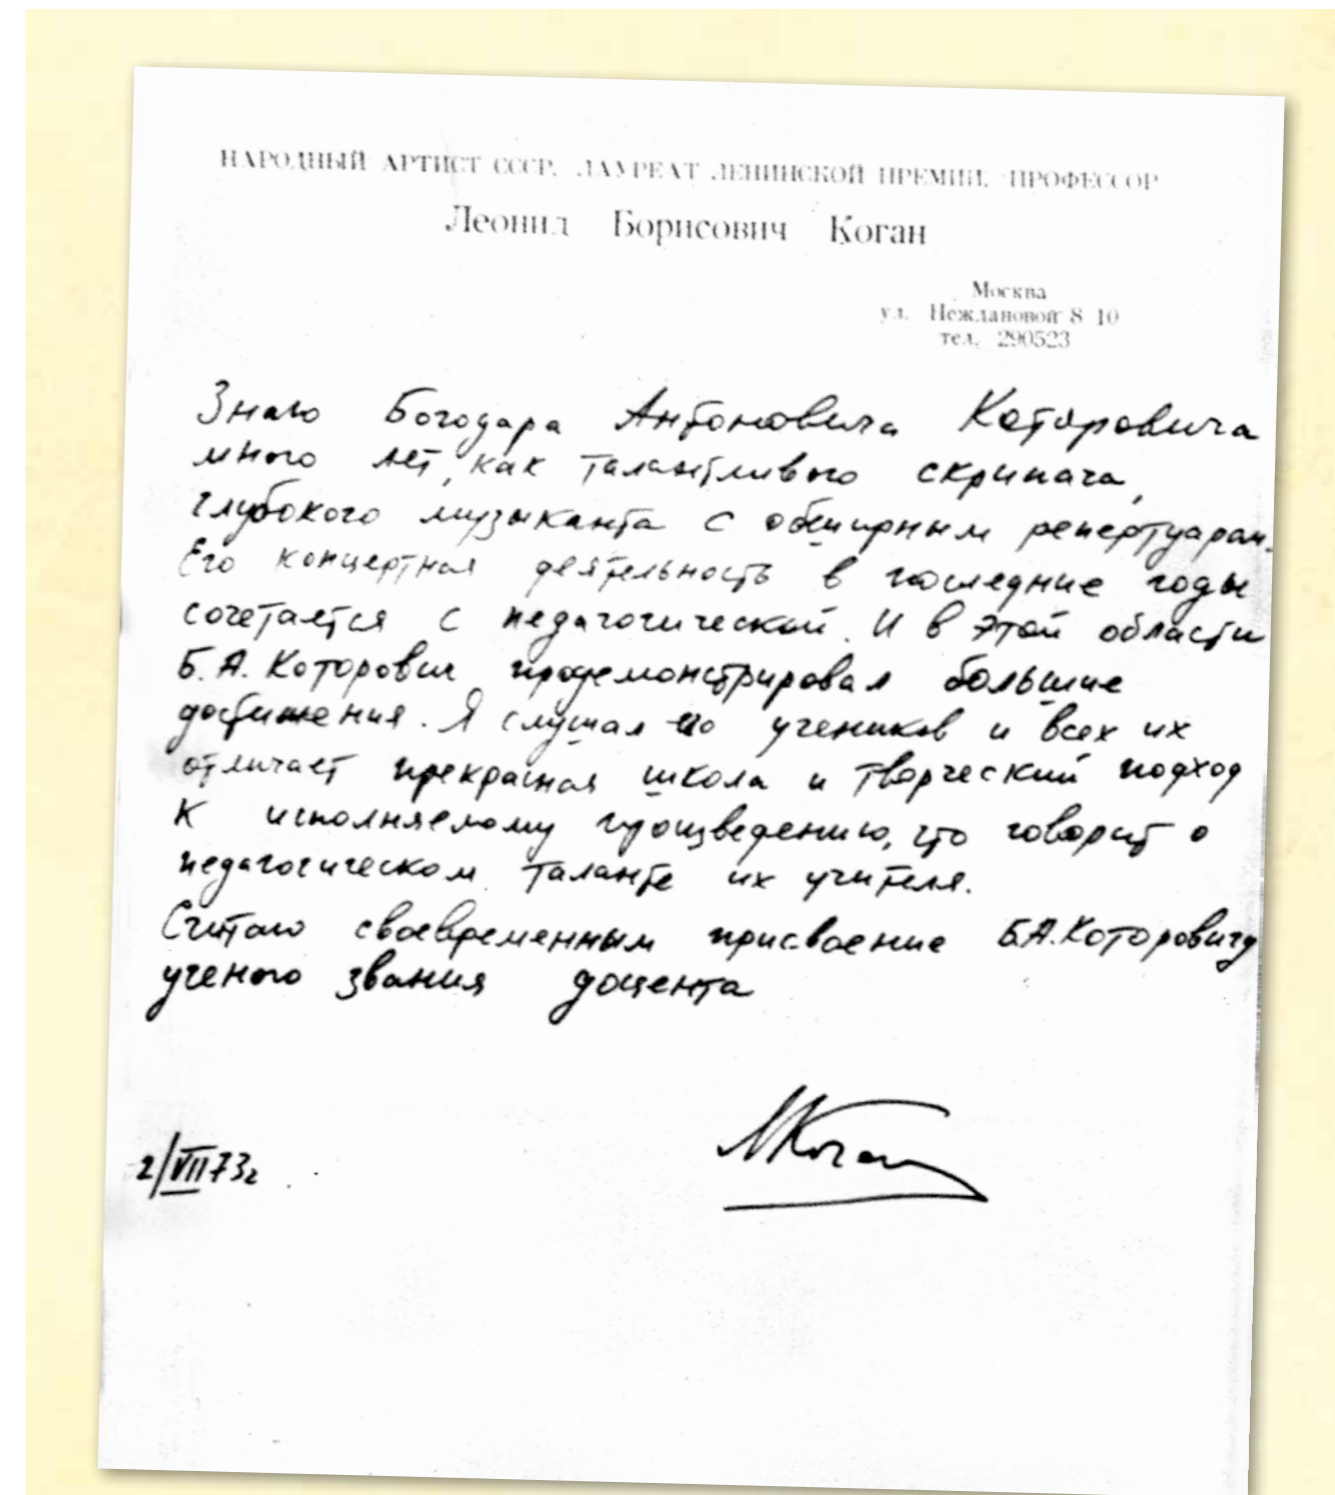 НАРОДНЫЙ АРТИСТ СССР, ЛАУРЕАТ ЛЕНИНСКОЙ ПРЕМИИ, ПРОФЕССОР
Леонид Борисович Коган
Москва
ул. Неждановой 8-10
тел. 290523
Знаю Богодара Антоновича Которовича
много лет, как талантливого скрипача,
глубокого музыканта с обширным репертуаром.
Его концертная деятельность в последние годы
сочетается с педагогической. И в этой области
Б.А. Которович продемонстрировал большие
достижения. Я слушал его учеников и всех их
отличает прекрасная школа и творческий подход
к исполняемому произведению, что говорит о
педагогическом таланте их учителя.
Считаю своевременным присвоение Б.А. Которовичу
ученого звания доцента
ЛКоган
2/VII 73г